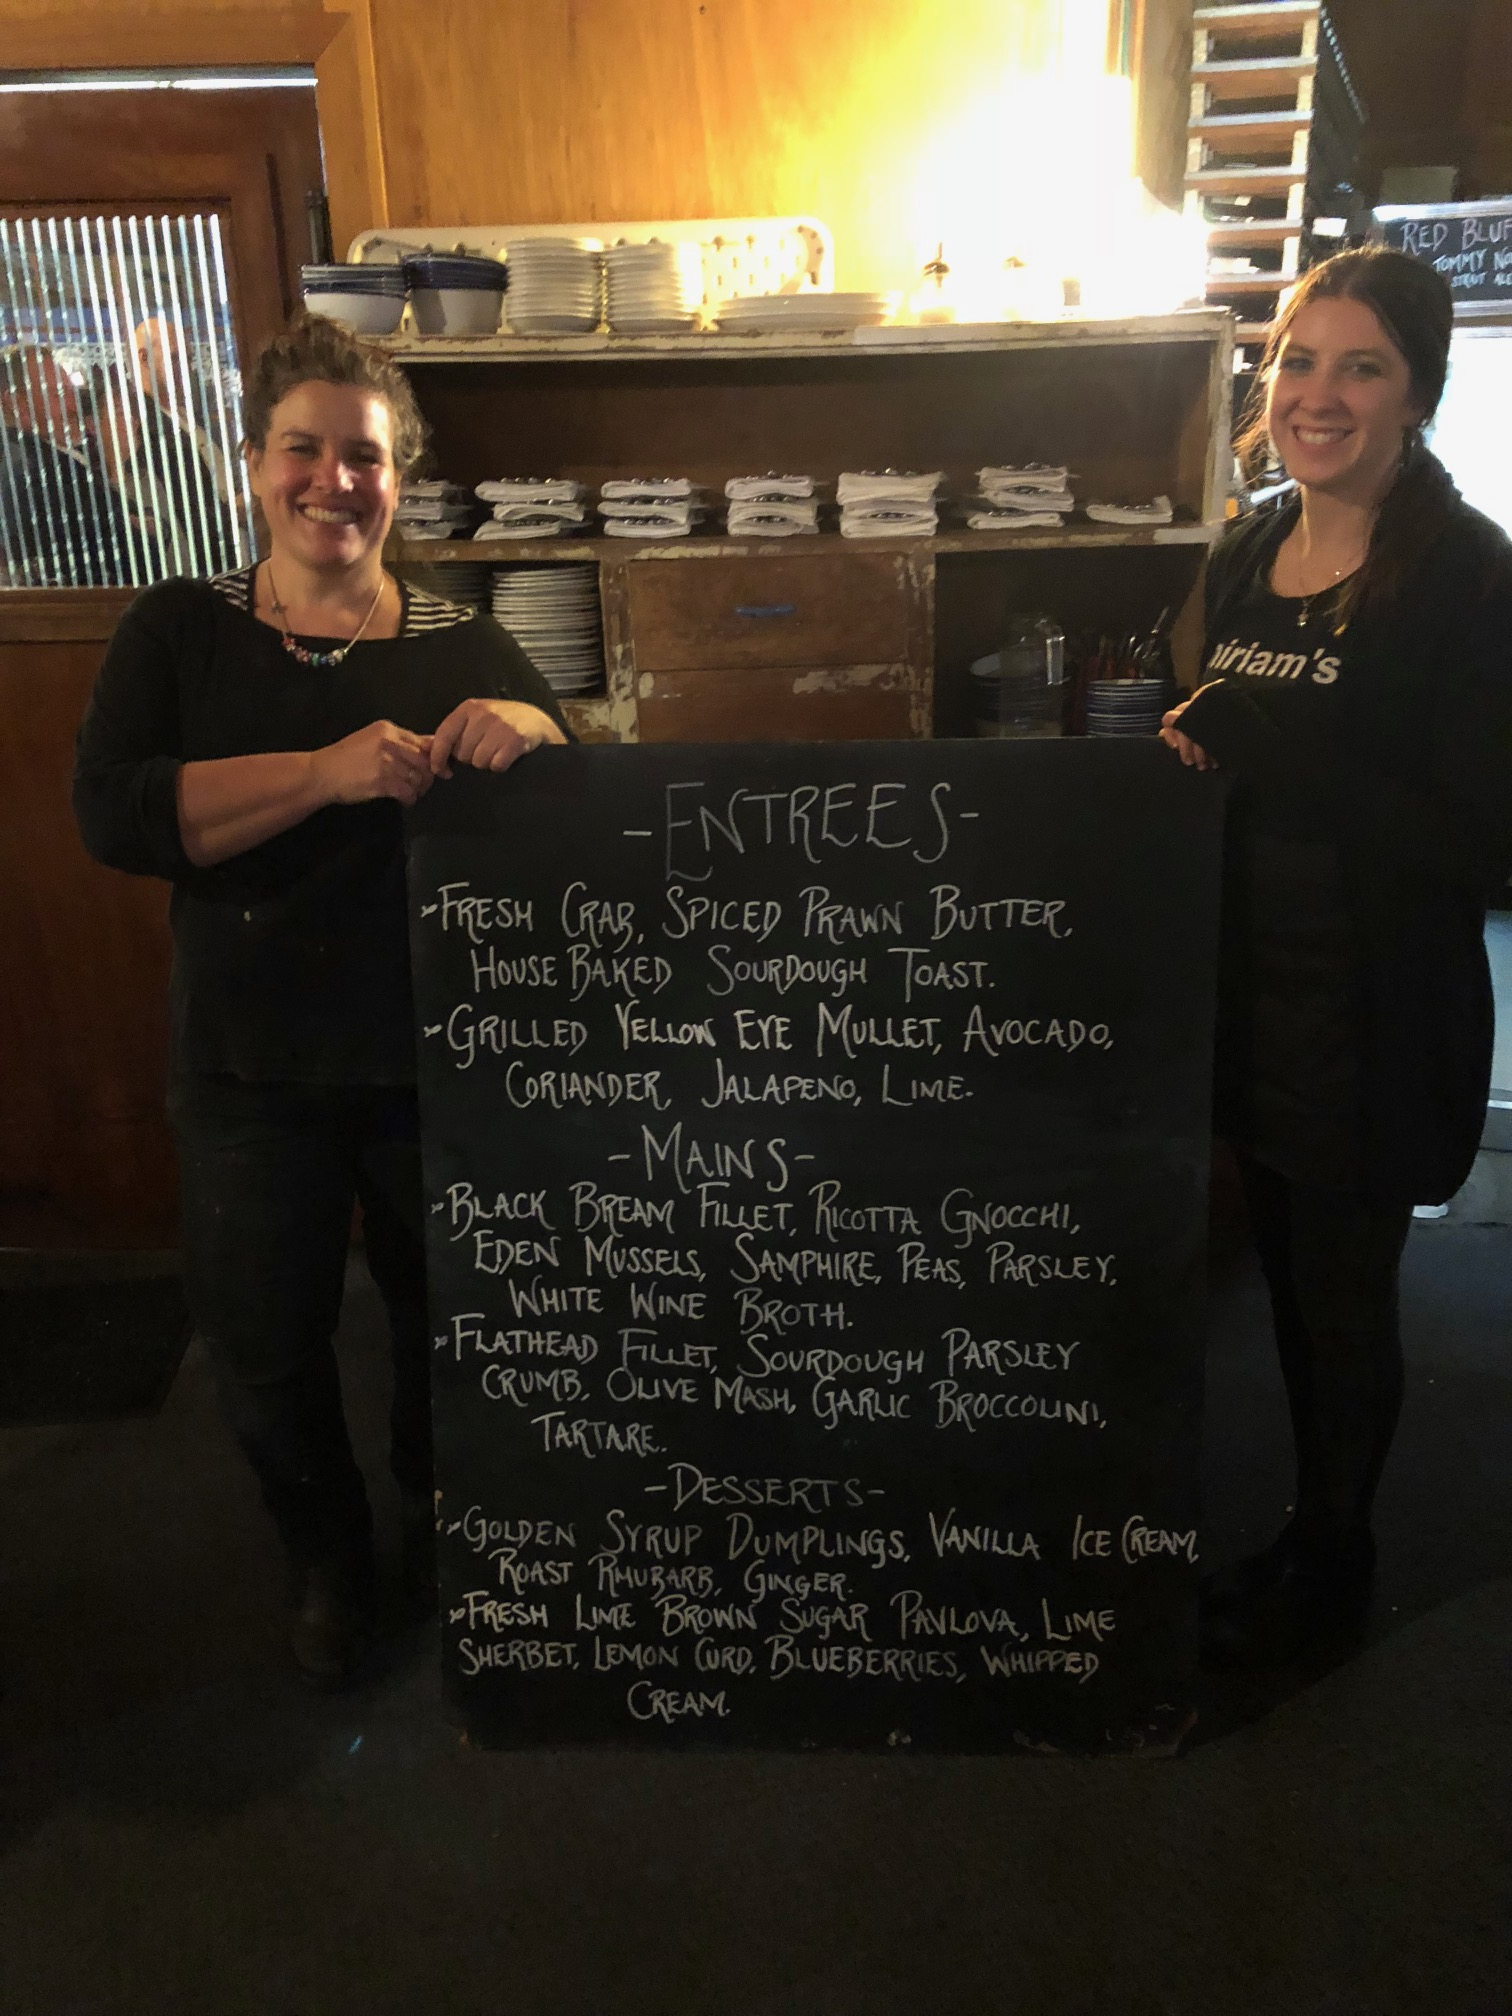 RED BLUF
TOMMY NO
STRUT ALE
niriam's
- ENTREES -
FRESH CRAB, SPICED PRAWN BUTTER,
HOUSE BAKED SOURDOUGH TOAST.
GRILLED YELLOW EYE MULLET, AVOCADO,
CORIANDER, JALAPENO, LIME.
- MAINS -
BLACK BREAM FILLET, RICOTTA GNOCCHI,
EDEN MUSSELS, SAMPHIRE, PEAS, PARSLEY,
WHITE WINE BROTH.
FLATHEAD FILLET, SOURDOUGH PARSLEY
CRUMB, OLIVE MASH, GARLIC BROCCOLINI,
TARTARE.
- DESSERTS -
GOLDEN SYRUP DUMPLINGS, VANILLA ICE CREAM,
ROAST RHUBARB, GINGER.
FRESH LIME BROWN SUGAR PAVLOVA, LIME
SHERBET, LEMON CURD, BLUEBERRIES, WHIPPED
CREAM.